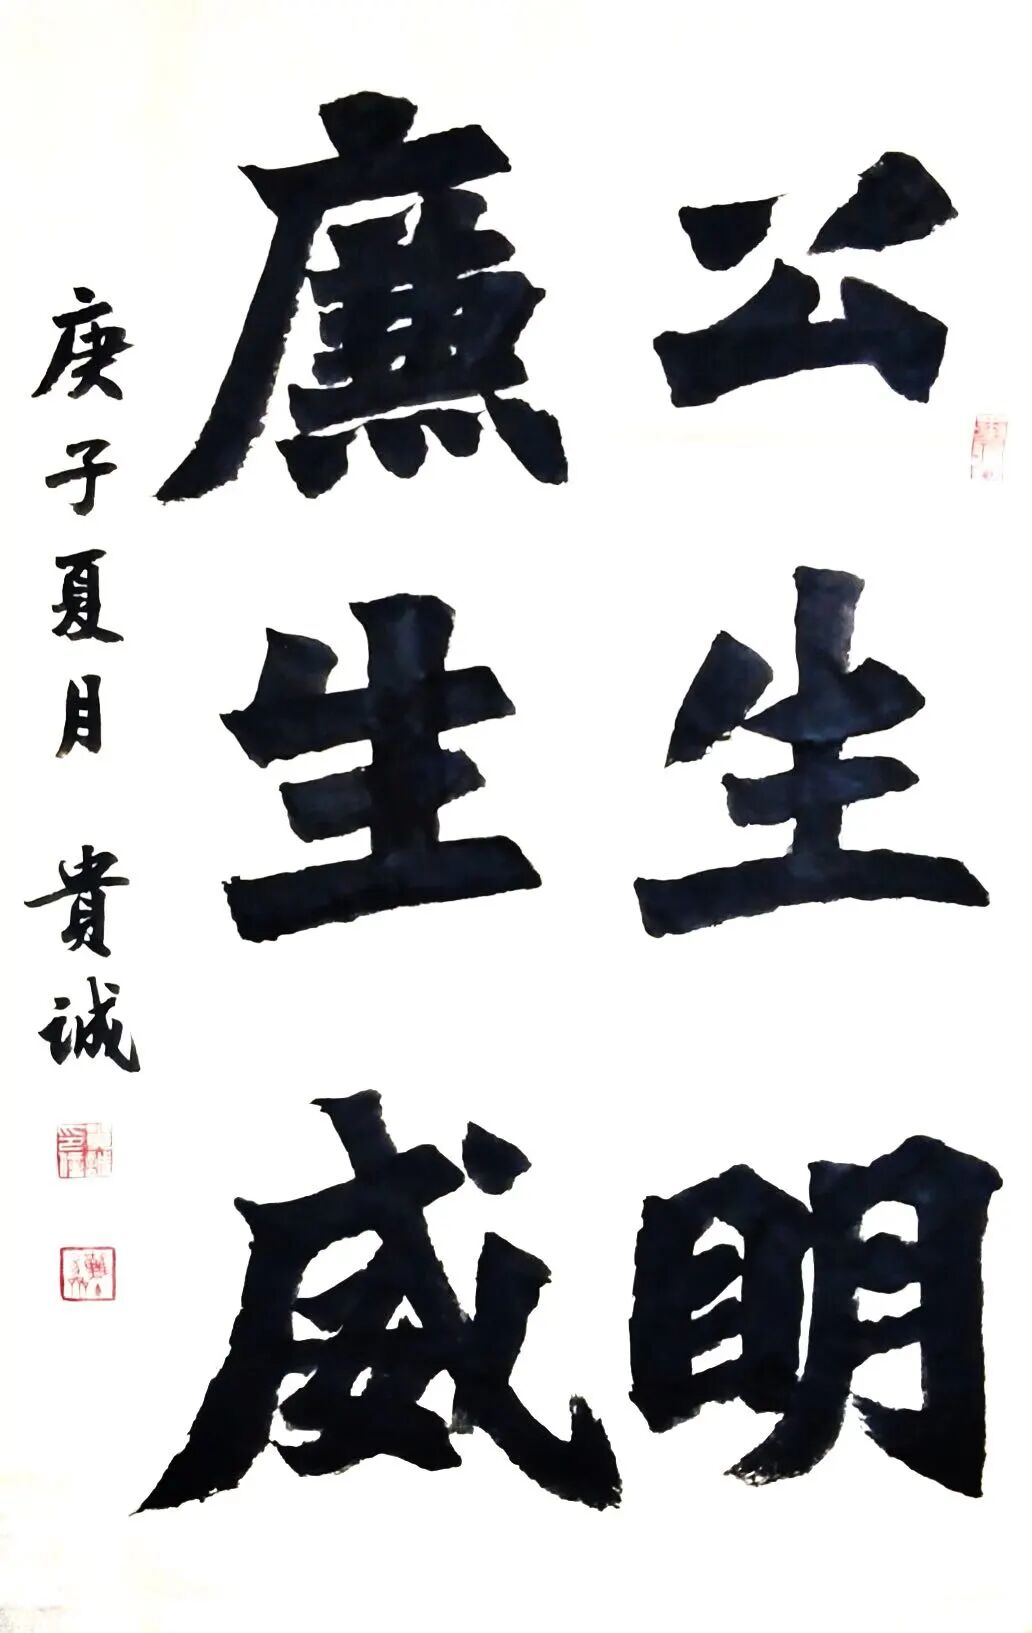 公生明
廉生威
庚子夏月 貴诚